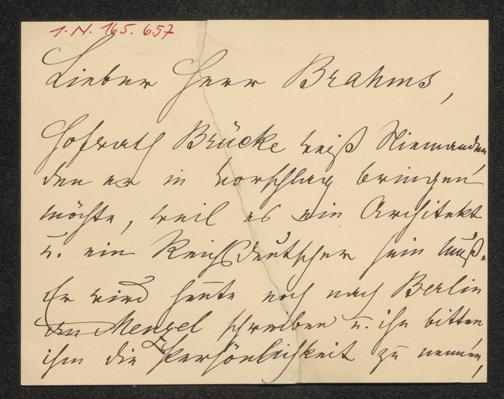 I.N. 165.657
Lieber Herr Brahms,
Hofrath Brücke weiß Niemanden
den er in Vorschlag bringen
möchte, weil es ein Architekt
u. ein Reichsdeutscher sein muß.
Er wird heute noch nach Berlin
an Menzel schreiben u. ihn bitten
ihm die Persönlichkeit zu nennen,